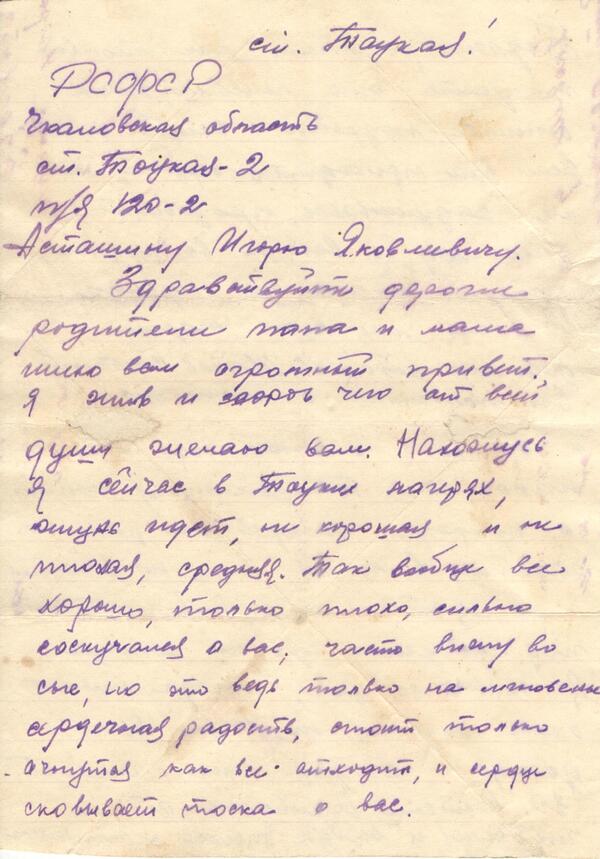 ст. Тоцкая!
РСФСР
Чкаловская область
ст. Тоцкая-2
п/я 120-2.
Асташину Игорю Яковлевичу.
Здравствуйте дороги
родители папа и мама
шлю вам огромный привет.
Я жив и здоров чего от всей
души желаю вам. Нахожусь
я сейчас в Тоцких лагерях,
жизнь идет, не хорошая и не
плохая, средняя. Так вообще все
хорошо, только плохо, сильно
соскучался о вас, часто вижу во
сне, но это ведь только на мгновенье
сердечная радость, стоит только
очнутся как все отходит, и сердце
сковывает тоска о вас.